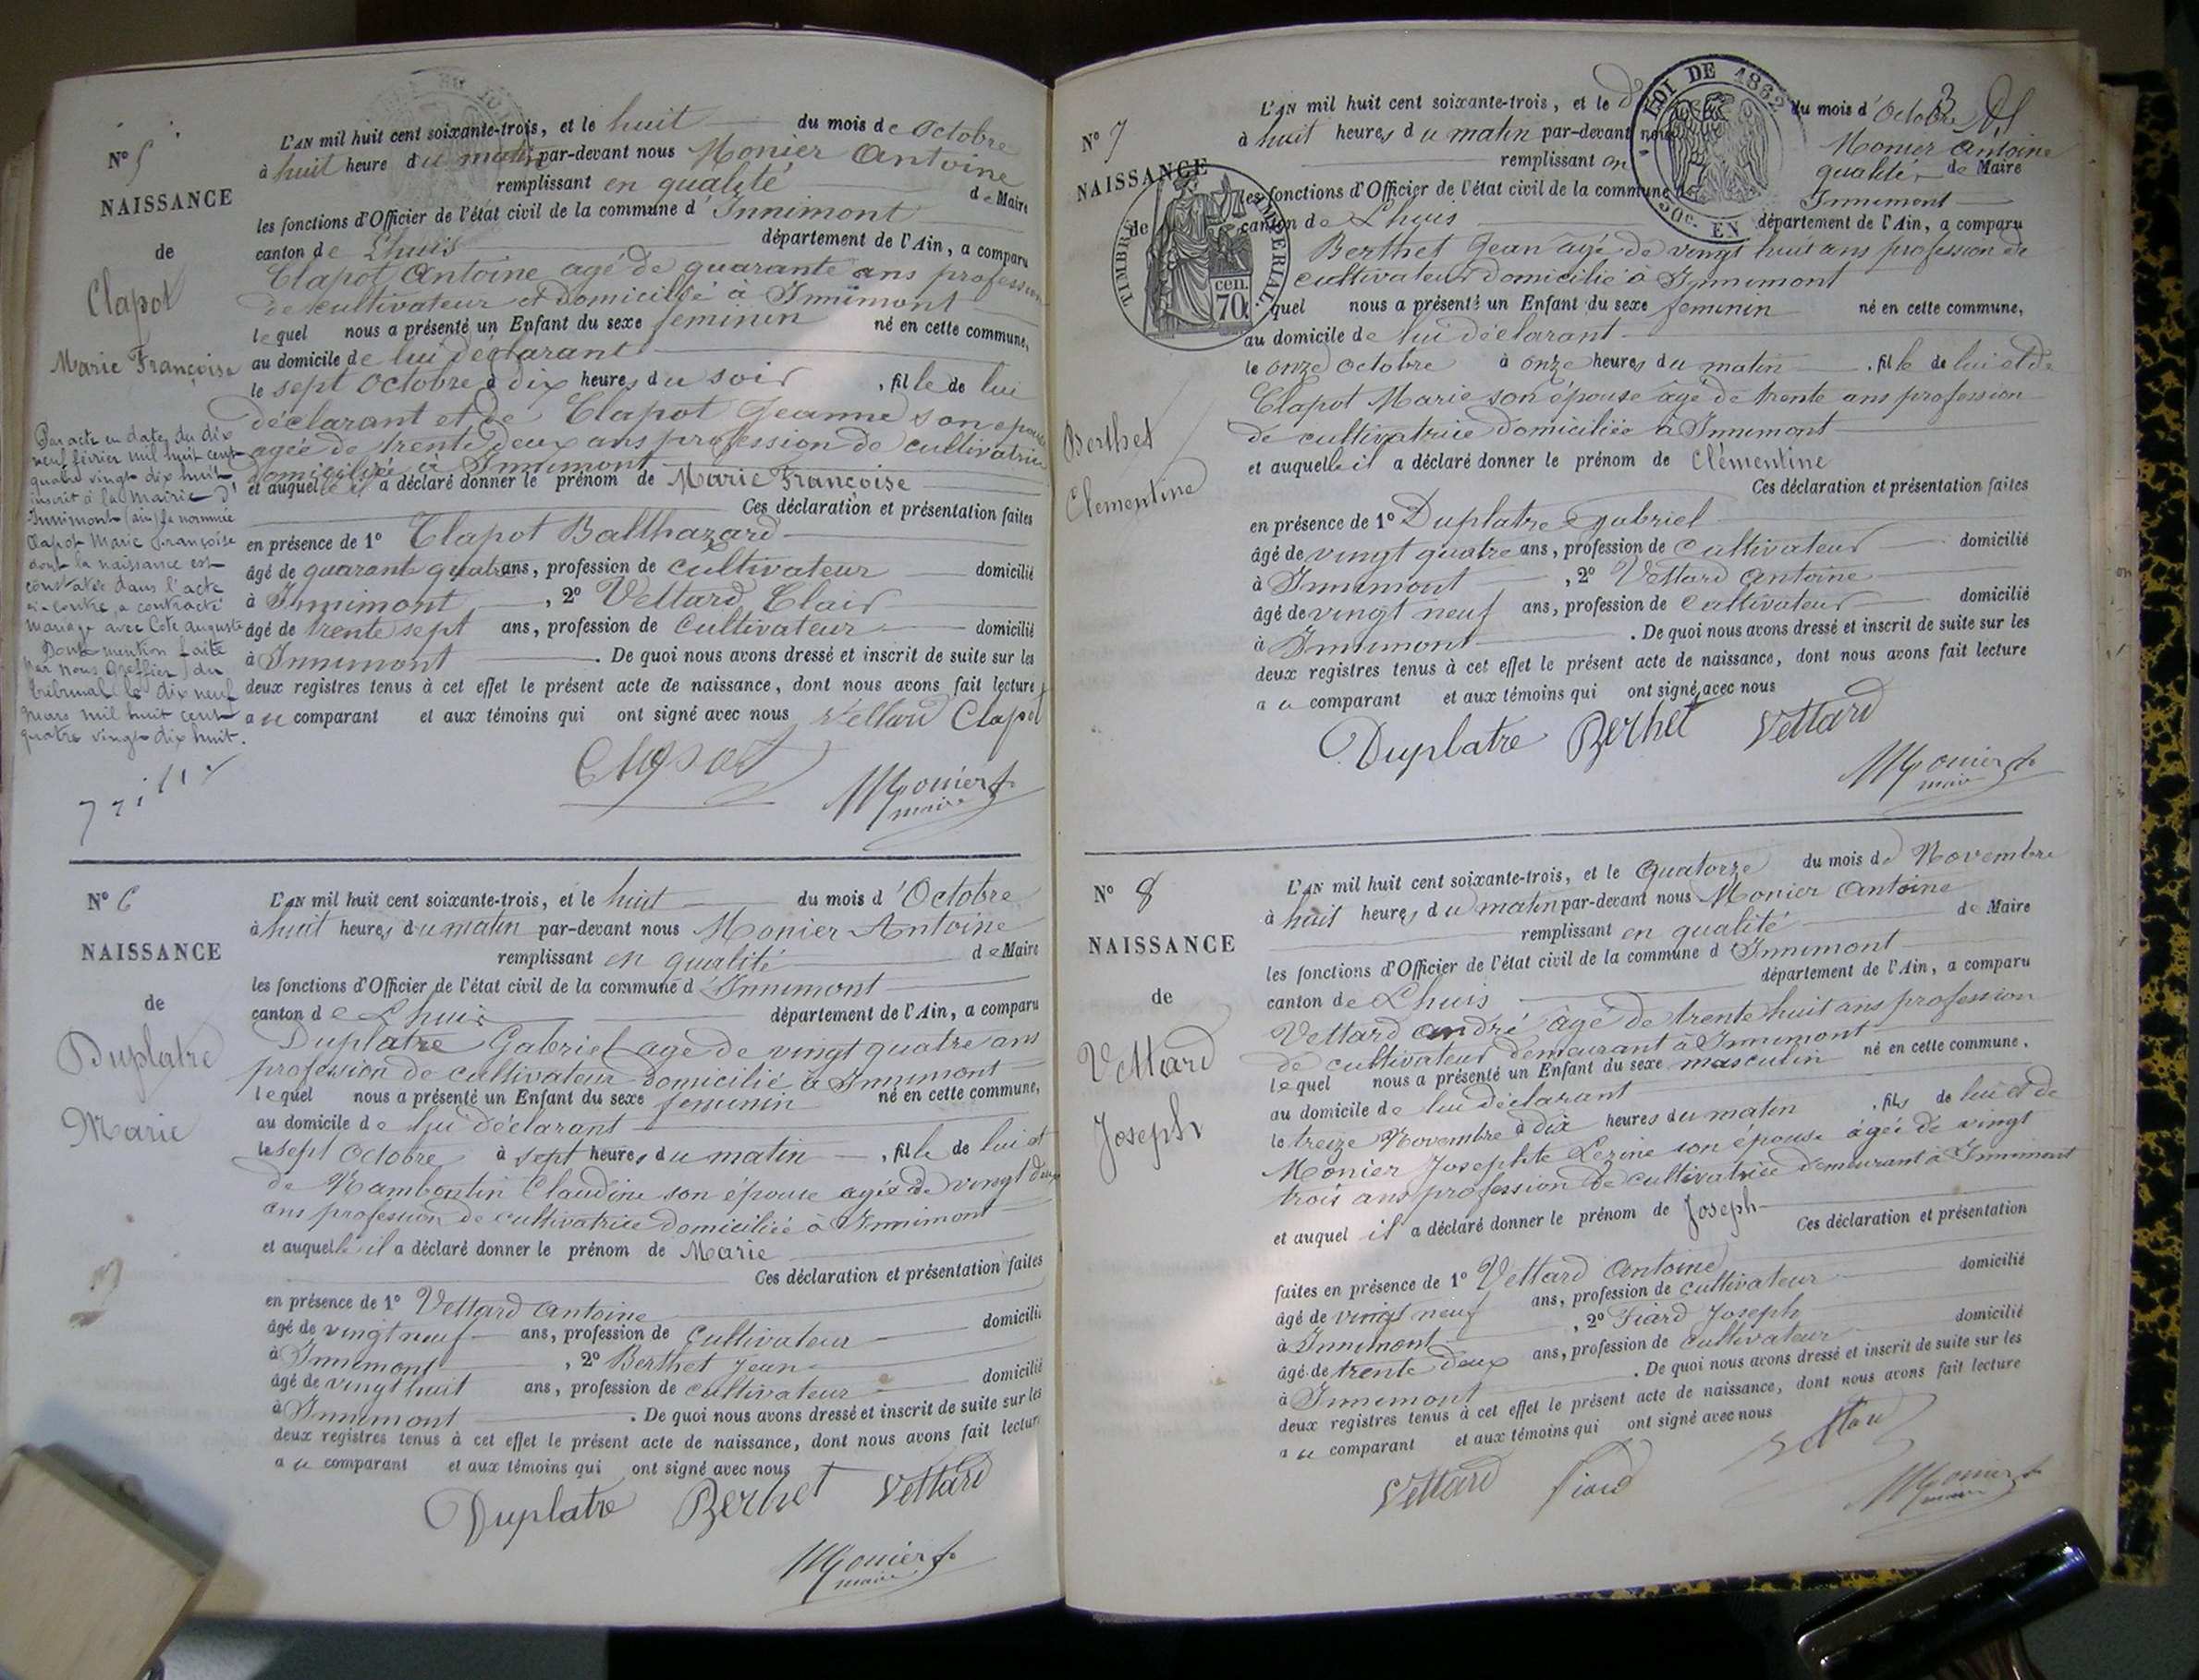 N° 5
NAISSANCE
de
Clapot
Marie Françoise
Par acte en date du dix
neuf février mil huit cent
quatre vingt dix huit
inscrit à la Mairie d'
Innimont (ain) la nommée
Clapot Marie Françoise
dont la naissance est
constatée dans l'acte
ci-contre, a contracté
mariage avec Cote auguste
Dont mention faite
par nous Greffier du
tribunal le dix neuf
mars mil huit cent
quatre vingt dix huit.
L'AN mil huit cent soixante-trois, et le huit du mois de Octobre
à huit heure du matin par-devant nous Monier Antoine
remplissant en qualité de Maire
les fonctions d'Officier de l'état civil de la commune d'Innimont
canton de Lhuis département de l'Ain, a comparu
Clapot Antoine agé de quarante ans profession
de cultivateur et domicilié à Innimont
lequel nous a présenté un Enfant du sexe feminin né en cette commune,
au domicile de lui déclarant
le sept Octobre à dix heures du soir, fille de lui
déclarant et de Clapot Jeanne son epouse
agée de trente deux ans profession de cultivatrice
domiciliée à Innimont
et auquelle il a déclaré donner le prénom de Marie Françoise
Ces déclaration et présentation faites
en présence de 1° Clapot Balthazard
âgé de quarante quatre ans, profession de cultivateur domicilié
à Innimont, 2° Vettard Clair
âgé de trente sept ans, profession de Cultivateur domicilié
à Innimont. De quoi nous avons dressé et inscrit de suite sur les
deux registres tenus à cet effet le présent acte de naissance, dont nous avons fait lecture
au comparant et aux témoins qui ont signé avec nous Vettard Clapot
Clapot
Monier
maire
N° 6
NAISSANCE
de
Duplatre
Marie
L'AN mil huit cent soixante-trois, et le huit du mois d'Octobre
à huit heures du matin par-devant nous Monier Antoine
remplissant en qualité de Maire
les fonctions d'Officier de l'état civil de la commune d Innimont
canton de Lhuis département de l'Ain, a comparu
Duplatre Gabriel agé de vingt quatre ans
profession de cultivateur domicilié à Innimont
lequel nous a présenté un Enfant du sexe feminin né en cette commune,
au domicile de lui déclarant
le sept Octobre à sept heures du matin, fille de lui et
de Rambontin Claudine son épouse agée de vingt deux
ans profession de cultivatrice domiciliée à Innimont
et auquelle il a déclaré donner le prénom de Marie
Ces déclaration et présentation faites
en présence de 1° Vettard Antoine
âgé de vingt neuf ans, profession de cultivateur domicilié
à Innimont, 2° Berthet Jean
âgé de vingt huit ans, profession de cultivateur domicilié
à Innimont. De quoi nous avons dressé et inscrit de suite sur les
deux registres tenus à cet effet le présent acte de naissance, dont nous avons fait lecture
au comparant et aux témoins qui ont signé avec nous
Duplatre Berthet Vettard
Monier
maire
N° 7
NAISSANCE
de
TIMBRE IMPERIAL.
cen.
70.
LOI DE 1862
50c. EN
Berthet
Clementine
3
L'AN mil huit cent soixante-trois, et le du mois d'Octobre
à huit heures du matin par-devant nous Monier Antoine
remplissant en qualité de Maire
les fonctions d'Officier de l'état civil de la commune d Innimont
canton de Lhuis département de l'Ain, a comparu
Berthet Jean agé de vingt huit ans profession de
cultivateur domicilié à Innimont
quel nous a présenté un Enfant du sexe feminin né en cette commune,
au domicile de lui déclarant
le onze octobre à onze heures du matin, fille de lui et de
Clapot Marie son épouse agé de trente ans profession
de cultivatrice domiciliée à Innimont
et auquelle il a déclaré donner le prénom de Clémentine
Ces déclaration et présentation faites
en présence de 1° Duplatre Gabriel
âgé de vingt quatre ans, profession de Cultivateur domicilié
à Innimont, 2° Vettard Antoine
âgé de vingt neuf ans, profession de Cultivateur domicilié
à Innimont. De quoi nous avons dressé et inscrit de suite sur les
deux registres tenus à cet effet le présent acte de naissance, dont nous avons fait lecture
au comparant et aux témoins qui ont signé avec nous
Duplatre Berthet Vettard
Monier
maire
N° 8
NAISSANCE
de
Vettard
Joseph
L'AN mil huit cent soixante-trois, et le Quatorze du mois de Novembre
à huit heures du matin par-devant nous Monier Antoine
remplissant en qualité de Maire
les fonctions d'Officier de l'état civil de la commune d Innimont
canton de Lhuis département de l'Ain, a comparu
Vettard andré agé de trente huit ans profession
de cultivateur demeurant à Innimont
lequel nous a présenté un Enfant du sexe masculin né en cette commune,
au domicile de lui déclarant
le treize Novembre à dix heures du matin, fils de lui et de
Monier Josephte Lezine son épouse agée de vingt
trois ans profession de cultivatrice demeurant à Innimont
et auquel il a déclaré donner le prénom de Joseph
Ces déclaration et présentation
faites en présence de 1° Vettard Antoine
âgé de vingt neuf ans, profession de cultivateur domicilié
à Innimont, 2° Fiard Joseph
âgé de trente deux ans, profession de cultivateur domicilié
à Innimont. De quoi nous avons dressé et inscrit de suite sur les
deux registres tenus à cet effet le présent acte de naissance, dont nous avons fait lecture
au comparant et aux témoins qui ont signé avec nous Vettard
Vettard Fiard
Monier
maire